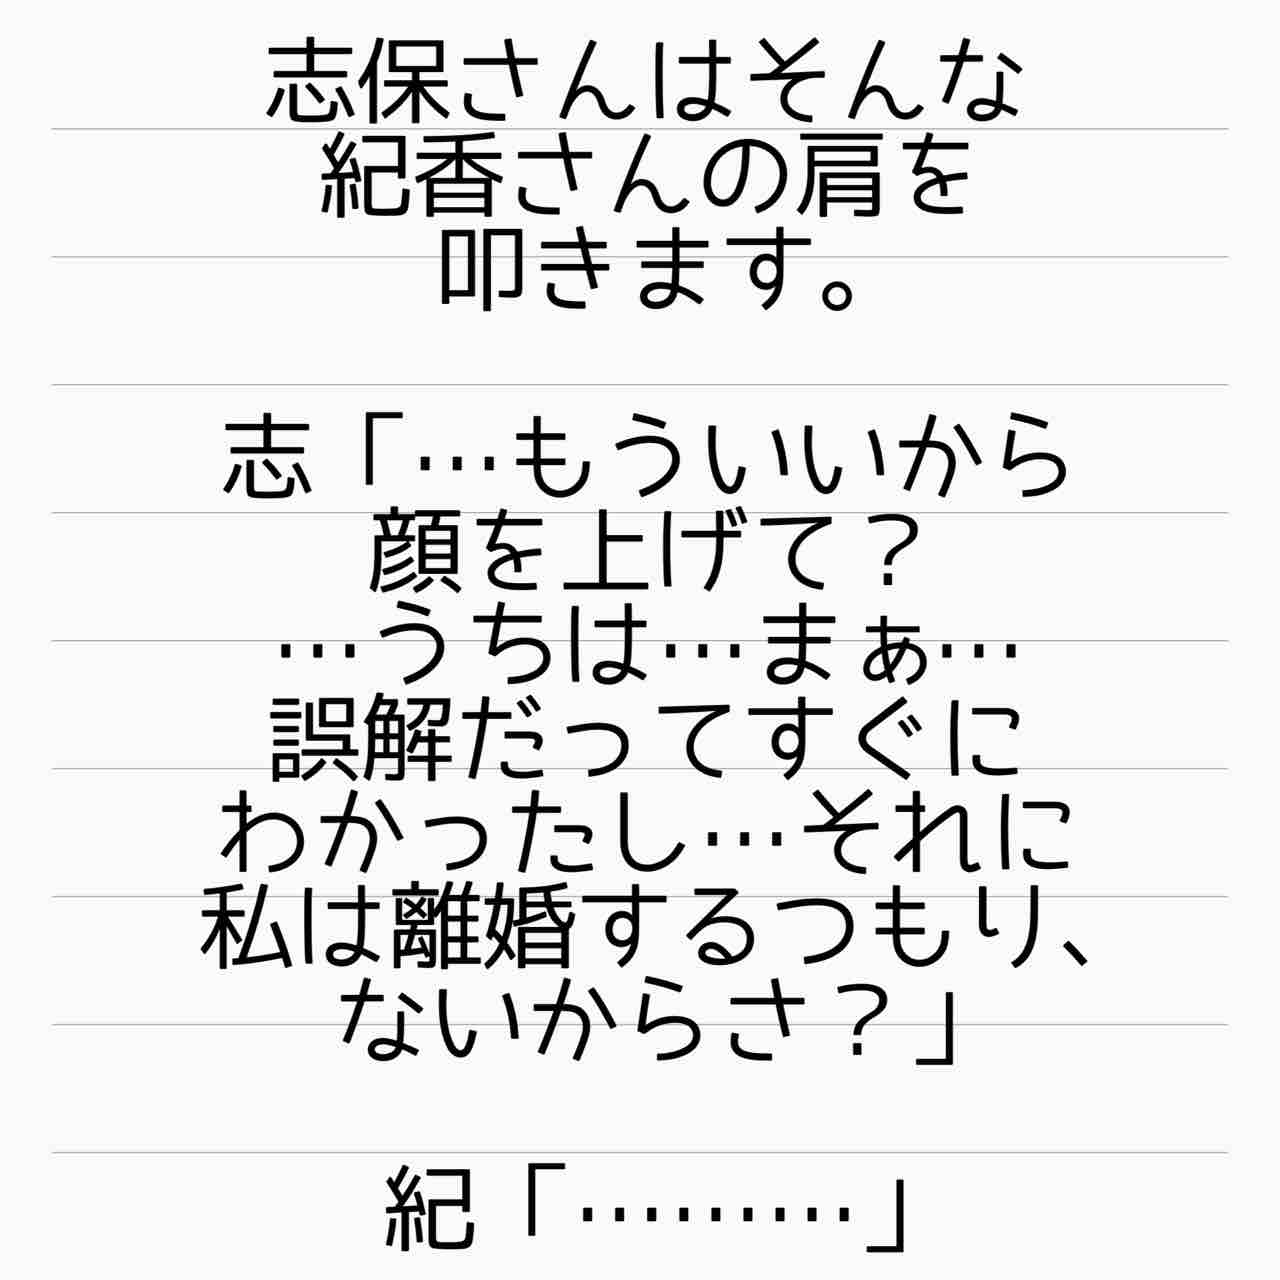 志保さんはそんな
紀香さんの肩を
叩きます。
志「…もういいから
顔を上げて？
…うちは…まぁ…
誤解だってすぐに
わかったし…それに
私は離婚するつもり、
ないからさ？」
紀「………」